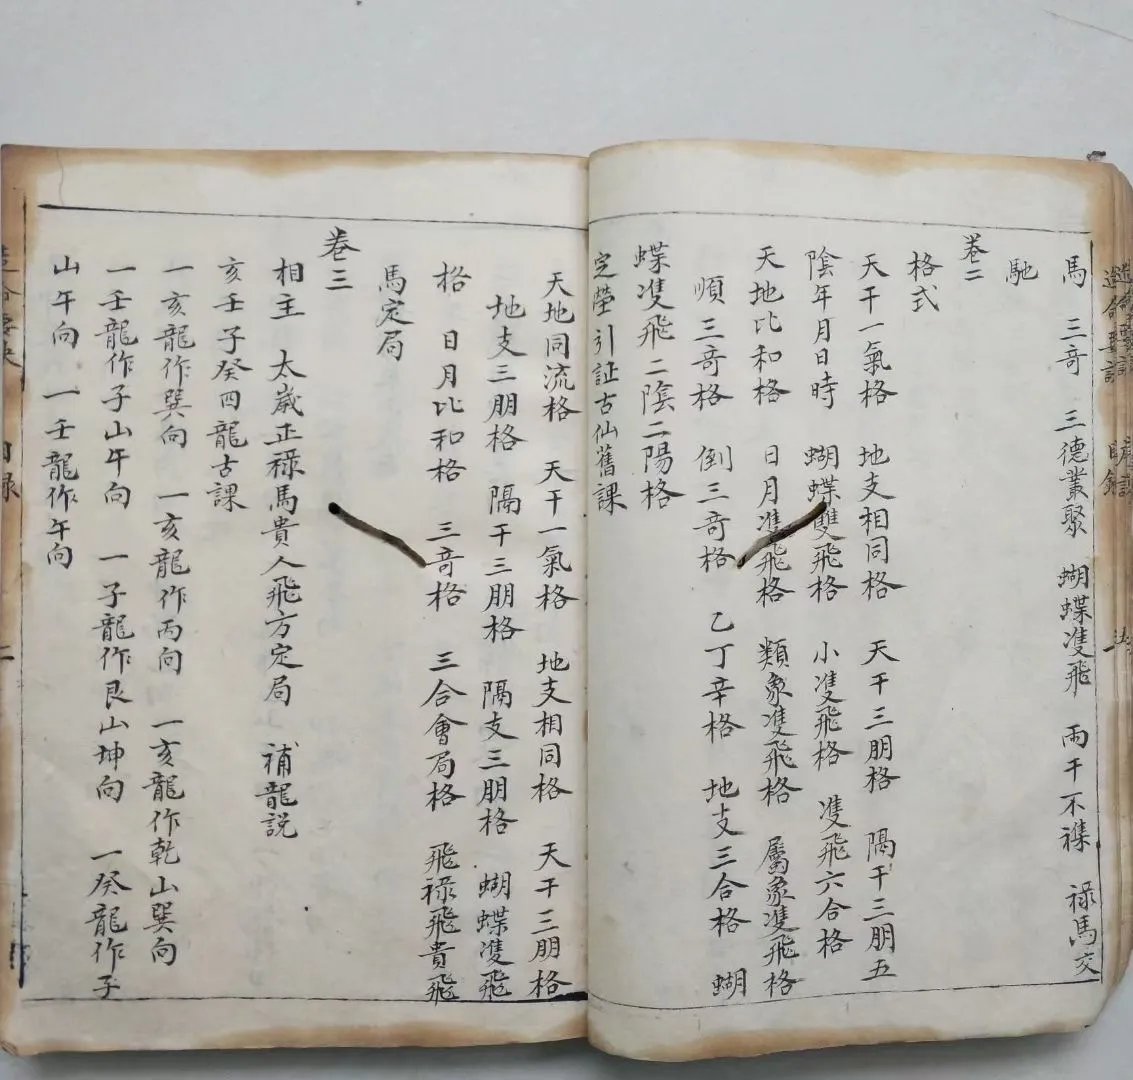 馬　三奇　三德叢聚　蝴蝶隻飛　兩干不襍　祿馬交
馳
卷二
格式
天干一氣格　地支相同格　天干三朋格　隔干三朋五
陰年月日時　蝴蝶雙飛格　小隻飛格　隻飛六合格
天地比和格　日月隻飛格　類象隻飛格　屬象隻飛格
順三奇格　倒三奇格　乙丁辛格　地支三合格　蝴
蝶隻飛二陰二陽格
定塋引証古仙舊課
天地同流格　天干一氣格　地支相同格　天干三朋格
地支三朋格　隔干三朋格　隔支三朋格　蝴蝶隻飛
格　日月比和格　三奇格　三合會局格　飛祿飛貴飛
馬定局
卷三
相主　太歲正祿馬貴人飛方定局　補龍説
亥壬子癸四龍古課
一亥龍作巽向　一亥龍作丙向　一亥龍作乾山巽向
一壬龍作子山午向　一子龍作艮山坤向　一癸龍作子
山午向　一壬龍作午向